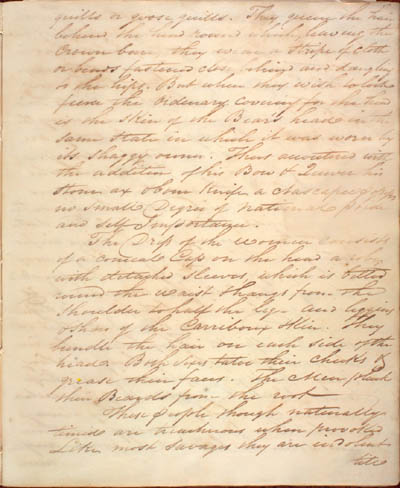 quills or goose quills. They queue the hair
behind the head round which, leaving the
Crown bare they wear a stripe of Cloth
or beads fastened close behind and dangling
to the hips. But when they wish to look
fierce the Ordinary Covering for the head
is the skin of the Bears head in the
same state in which it was worn by
its shaggy owner. Thus accoutred with
the addition of his Bow & Quiver his
stone ax & bone Knife a Chascepee
no small Degree of National pride
and Self Importance.
The Dress of the women consists
of a conical Cap on the head a robe
with detached sleeves, which is belted
round the waist & hangs from the
shoulder to half the leg and leggins
& shoes of the Carribour skin. They
bundle the hair on each side of the
head. Both sexes tatoo their cheeks &
grease their faces. The Men pluck
their Beards from the root
These people though naturally
timid are treacherous when provoked
Like most savages they are indolent